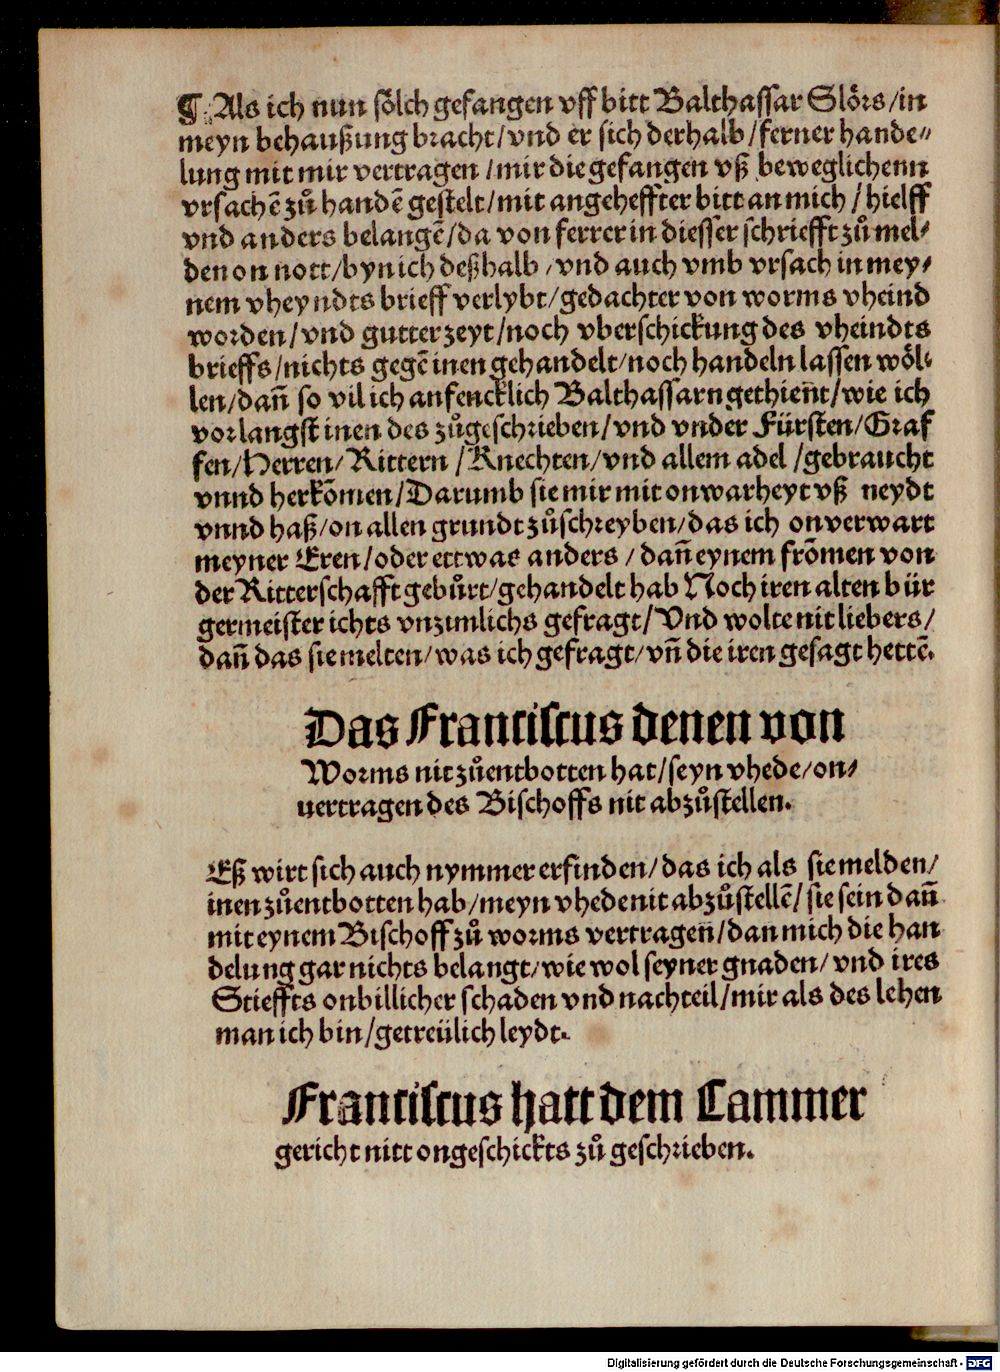 ¶ Als ich nun sölch gefangen vff bitt Balthassar Slörs/in
meyn behaußung bracht/vnd er sich derhalb/ferner hande⸗
lung mit mir vertragen/mir die gefangen vß beweglichenn
vrsachē zů handē gestelt/mit angeheffter bitt an mich/hielff
vnd anders belangē/da von ferrer in diesser schriefft zů mel⸗
den on nott/byn ich deßhalb/vnd auch vmb vrsach in mey⸗
nem vheyndts brieff verlybt/gedachter von worms vheind
worden/vnd gutter zeyt/noch vberschickung des vheindts
brieffs/nichts gegē inen gehandelt/noch handeln lassen wöl⸗
len/dañ so vil ich anfencklich Balthassarn gethieñt/wie ich
vorlangst inen des zůgeschrieben/vnd vnder Fürsten/Graf
fen/Herren/Rittern/Knechten/vnd allem adel/gebraucht
vnnd herkōmen/Darumb sie mir mit onwarheyt vß neydt
vnnd haß/on allen grundt zůschreyben/das ich onverwart
meyner Eren/oder ettwas anders/dañ eynem frōmen von
der Ritterschafft gebůrt/gehandelt hab Noch iren alten bür
germeister ichts vnzimlichs gefragt/Vnd wolte nit liebers/
dañ das sie melten/was ich gefragt/vñ die iren gesagt hettē.
Das Franciscus denen von
Worms nit zůentbotten hat/seyn vhede/on⸗
vertragen des Bischoffs nit abzůstellen.
Eß wirt sich auch nymmer erfinden/das ich als sie melden/
inen zůentbotten hab/meyn vhede nit abzůstellē/sie sein dañ
mit eynem Bischoff zů worms vertragen/dan mich die han
delung gar nichts belangt/wie wol seyner gnaden/vnd ires
Stieffts onbillicher schaden vnd nachteil/mir als des lehen
man ich bin/getreülich leydt.
Franciscus hatt dem Cammer
gericht nitt ongeschickts zů geschrieben.
Digitalisierung gefördert durch die Deutsche Forschungsgemeinschaft - DFG